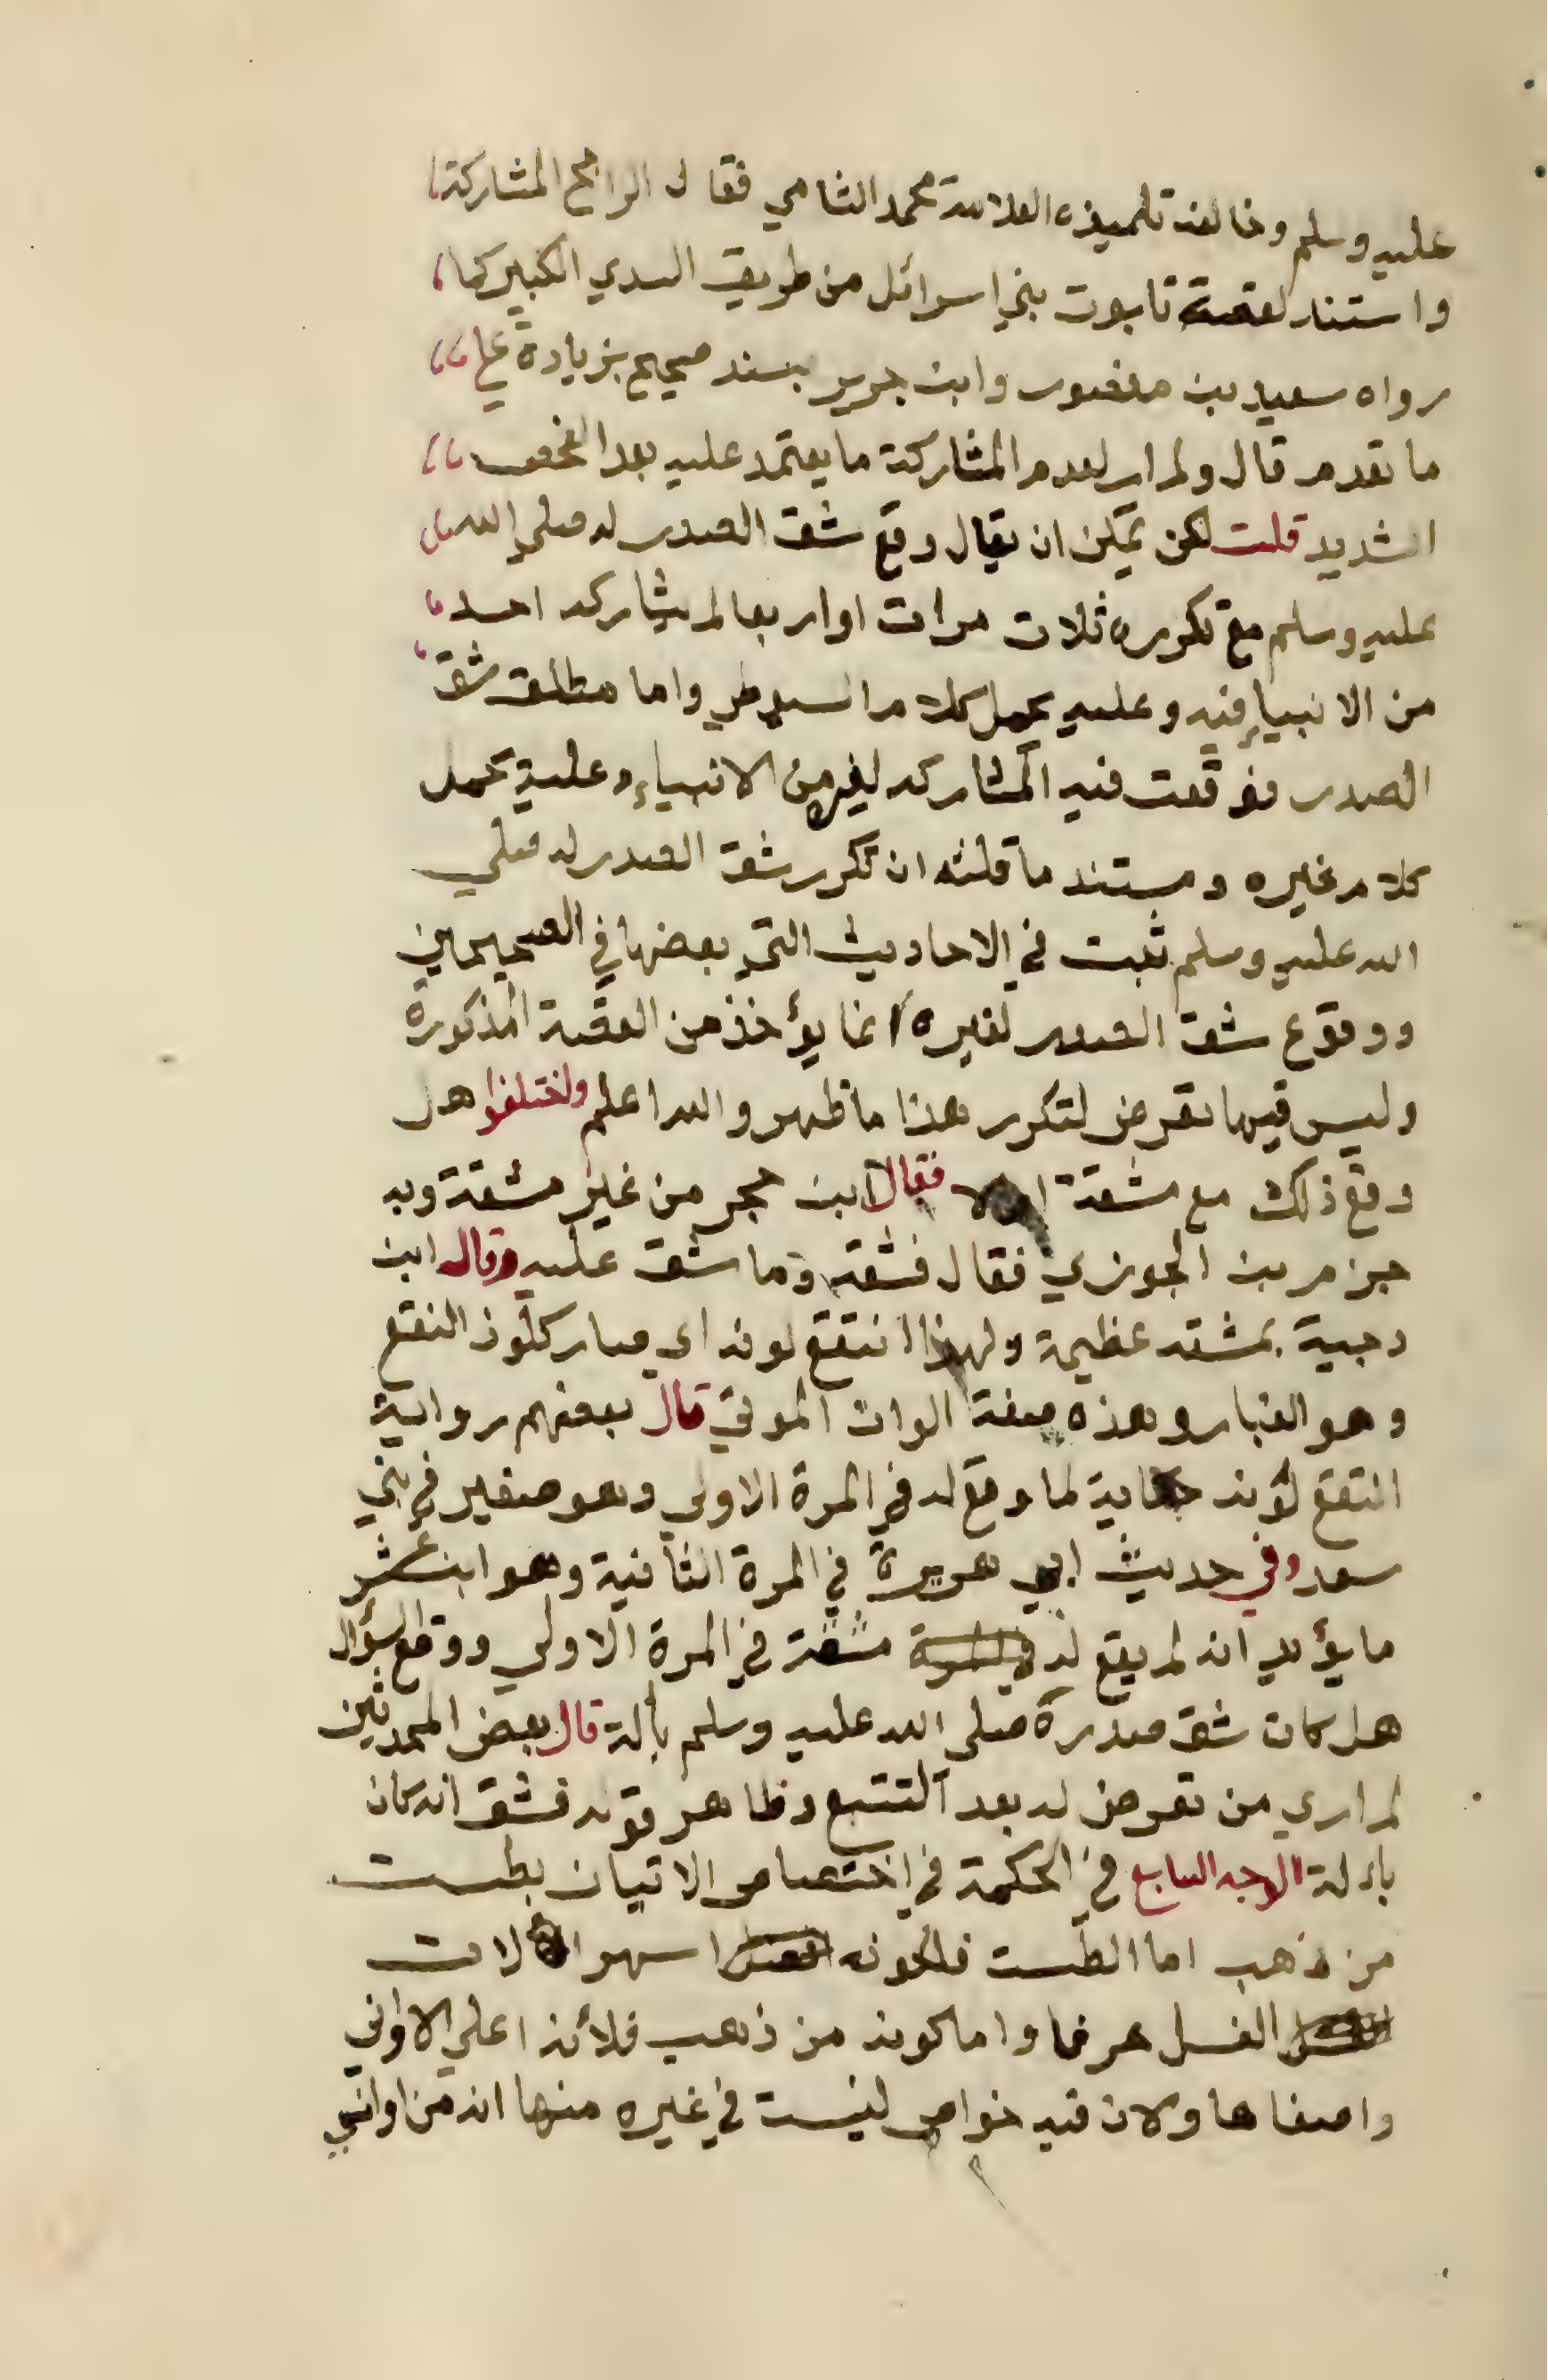 عليه وسلم وخالفه تلميذه العلامة محمد الشامي فقال الراجح المشاركة
واستند لقصة تابوت بني اسرائل من طريق السدي الكبير كما
رواه سعيد بن منصور وابن جرير بسند صحيح بزيادة علي
ما تقدم قال ولم ار لعدم المشاركة ما يعتمد عليه بعد الفحص
الشديد قلت لكن يمكن ان يقال وقع شق الصدر له صلي الله
عليه وسلم مع تكرره ثلاث مرات او اربعا لم يشاركه احد
من الانبياء فيه وعليه يحمل كلام السيوطي واما مطلق شق
الصدر فوقعت فيه المشاركه لغيره من الانبياء وعليه يحمل
كلام غيره ومستند ما قلته ان تكرر شق الصدر له صلي
الله عليه وسلم ثبت في الاحاديث التي بعضها في الصحيحين
ووقوع شق الصدر لغيره انما يؤخذ من القصة المذكورة
وليس فيها تعرض لتكرر هذا ما ظهر والله اعلم واختلفوا هل
وقع ذلك مع مشقة اولا فقال ابن حجر من غير مشقة وبه
جزم بن الجوزي فقال فشقه وما شق عليه وقال ابن
دحية بمشقه عظيمة ولهذا انتقع لونه اي صار كلون النقع
وهو الغبار وهذه صفة الوان الموتي قال بعضهم رواية
انتقع لونه حكاية لما وقع له في المرة الاولي وهو صغير في بني
سعد وفي حديث ابي هريرة في المرة الثانية وهو ابن عشر
ما يؤيد انه لم يقع له مشقة في المرة الاولي ووقع السؤال
هل كان شق صدره صلي الله عليه وسلم بألة قال بعض المحدثين
لم اري من تعرض له بعد التتبع وظاهر قوله فشق انه كان
بالة الوجه السابع في الحكمة في اختصاص الاتيان بطست
من ذهب اما الطست فلكونه اشهر الالات
الغسل عرفا واما كونه من ذهب فلأنه اعلي الاواني
واصفاها ولان فيه خواص ليست في غيره منها انه من اواني